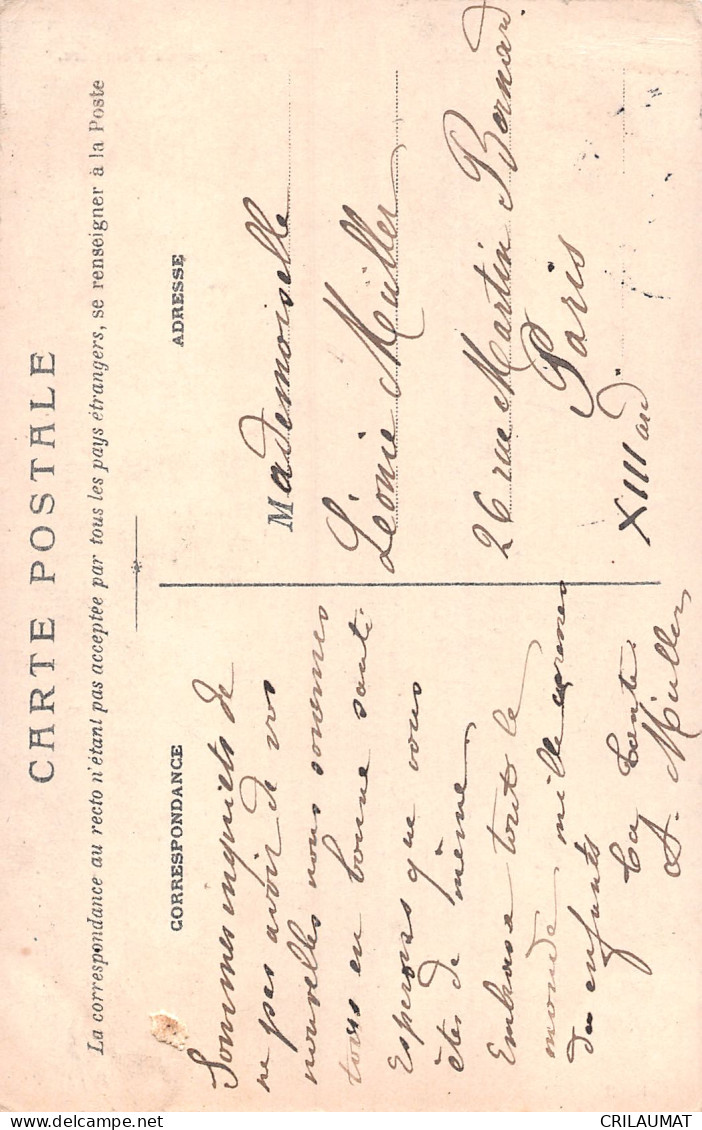 CARTE POSTALE
La correspondance au recto n'étant pas acceptée par tous les pays étrangers, se renseigner à la Poste
CORRESPONDANCE
Sommes inquiets de
ne pas avoir de vos
nouvelles nous sommes
tous en bonne santé
Esperons que vous
êtes de même
Embrasse tout le
monde mille
des enfants
Ta tante
A. Müller
ADRESSE
Mademoiselle
Léonie Müller
26 rue Martin Bernard
Paris
XIII
delcampe.net
CRILAUMAT